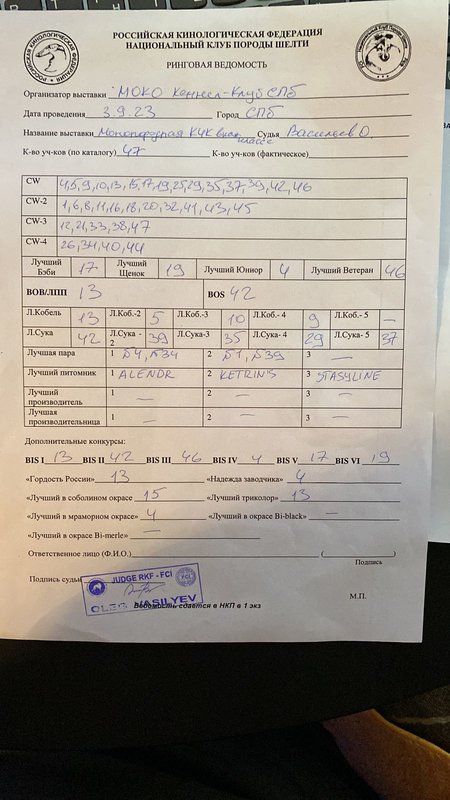 РОССИЙСКАЯ КИНОЛОГИЧЕСКАЯ ФЕДЕРАЦИЯ
НАЦИОНАЛЬНЫЙ КЛУБ ПОРОДЫ ШЕЛТИ
РИНГОВАЯ ВЕДОМОСТЬ
Организатор выставки МОКО Кеннел-Клуб СПб
Дата проведения 3.9.23 Город СПб
Название выставки Монопородная КЧК высш. класса Судья Васильев О.
К-во уч-ков (по каталогу) 47 К-во уч-ков (фактическое)
CW 4,5,9,10,13,15,17,19,25,29,35,37,39,42,46
CW-2 1,6,8,11,16,18,20,32,41,43,45
CW-3 12,21,33,38,47
CW-4 26,34,40,44
Лучший Бэби 17 Лучший Щенок 19 Лучший Юниор 4 Лучший Ветеран 46
BOB/ЛПП 13 BOS 42
Л.Кобель 13 Л.Коб.-2 5 Л.Коб.-3 10 Л.Коб.- 4 9 Л.Коб.- 5 —
Л.Сука 42 Л.Сука - 2 39 Л.Сука-3 35 Л.Сука- 4 29 Л.Сука- 5 37
Лучшая пара 1 №4, №34 2 №1, №39 3 —
Лучший питомник 1 ALENDR 2 KETRINS 3 STASYLINE
Лучший производитель 1 — 2 — 3 —
Лучшая производительница 1 — 2 — 3 —
Дополнительные конкурсы:
BIS I 13 BIS II 42 BIS III 46 BIS IV 4 BIS V 17 BIS VI 19
«Гордость России» 13 «Надежда заводчика» 4
«Лучший в соболином окрасе 15 «Лучший триколор» 13
«Лучший в мраморном окрасе» 4 «Лучший в окрасе Bi-black» —
«Лучший в окрасе Bi-merle» —
Ответственное лицо (Ф.И.О.) ( )
Подпись
Подпись судьи
JUDGE RKF - FCI
OLEG VASILYEV
Ведомость сдается в НКП в 1 экз
М.П.